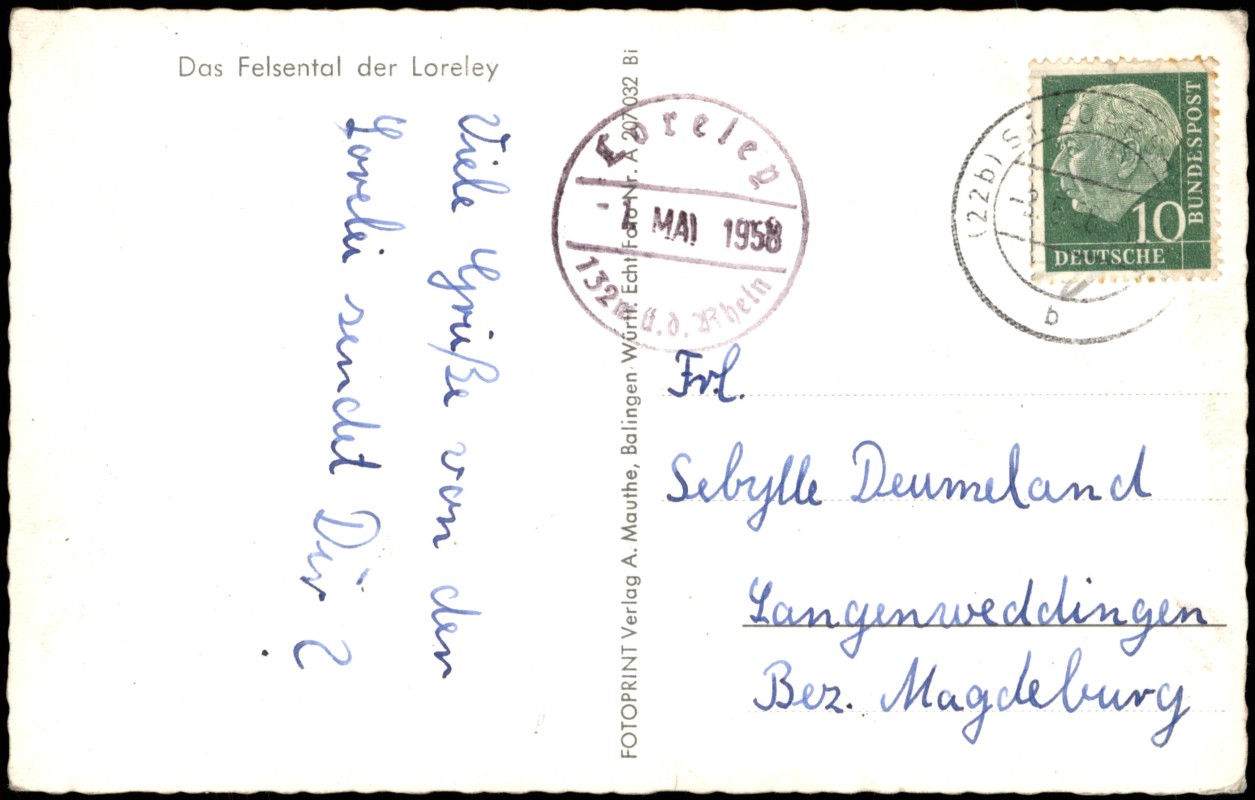 Das Felsental der Loreley
Viele Grüße von der
Lorelei sendet Dir ?
FOTOPRINT Verlag A. Mauthe, Balingen Württ. Echt Foto Nr. A 207032 Bi
Loreley
MAI 1958
132m ü.d. Rhein
(22b)
b
BUNDESPOST
10
DEUTSCHE
Frl.
Sebylle Deumeland
Langenweddingen
Bez. Magdeburg